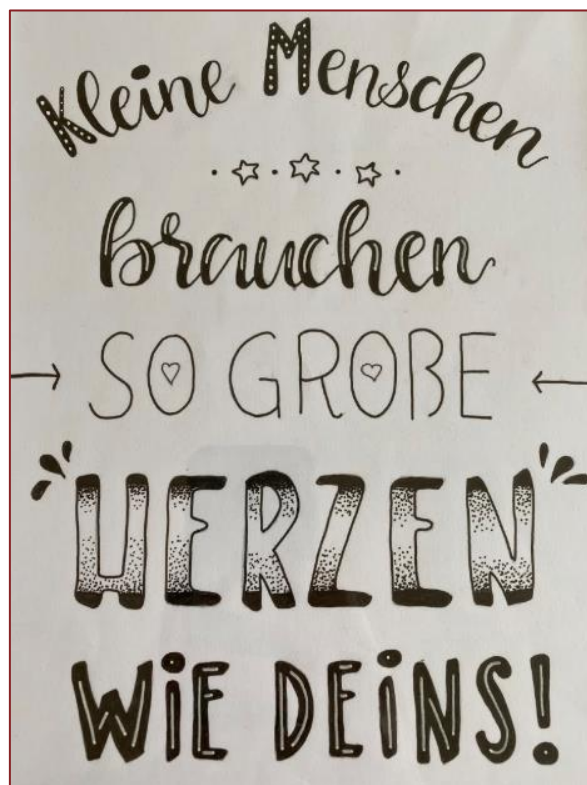 Kleine Menschen
brauchen
SO GROßE
HERZEN
WiE DEiNS!